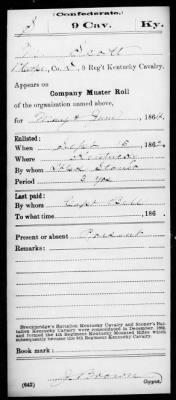 (Confederate.)
S 9 Cav. Ky.
Scott
Co. , 9 Reg't Kentucky Cavalry.
Appears on
Company Muster Roll
of the organization named above,
for May & June, 1864.
Enlisted:
When Sept 15, 1862.
Where Kentucky
By whom
Period 3 yrs
Last paid:
By whom Capt Bell
To what time , 186 .
Present or absent Present
Remarks:
Breckinridge's Battalion Kentucky Cavalry and Stoner's Battalion Kentucky Cavalry were consolidated in December, 1862, and formed the 4th Regiment Kentucky Mounted Rifles which subsequently became the 9th Regiment Kentucky Cavalry.
Book mark:
J. Brown
(642) Copyist.